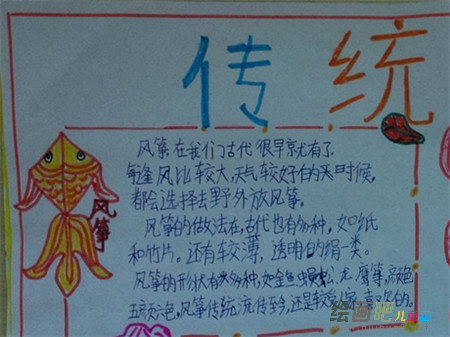 传统
风筝在我们古代很早就有了
每逢风比较大,天气较好的时候,
都会选择去野外放风筝。
风筝的做法在古代也有多种,如纸
和竹片。还有较薄,透明的绢一类。
风筝的形状有多种,如金鱼虫蜈蚣,龙,鹰等,
五颜六色,风筝传统流传至今,还是较受人喜欢的。
风筝
绘画吧 儿童网